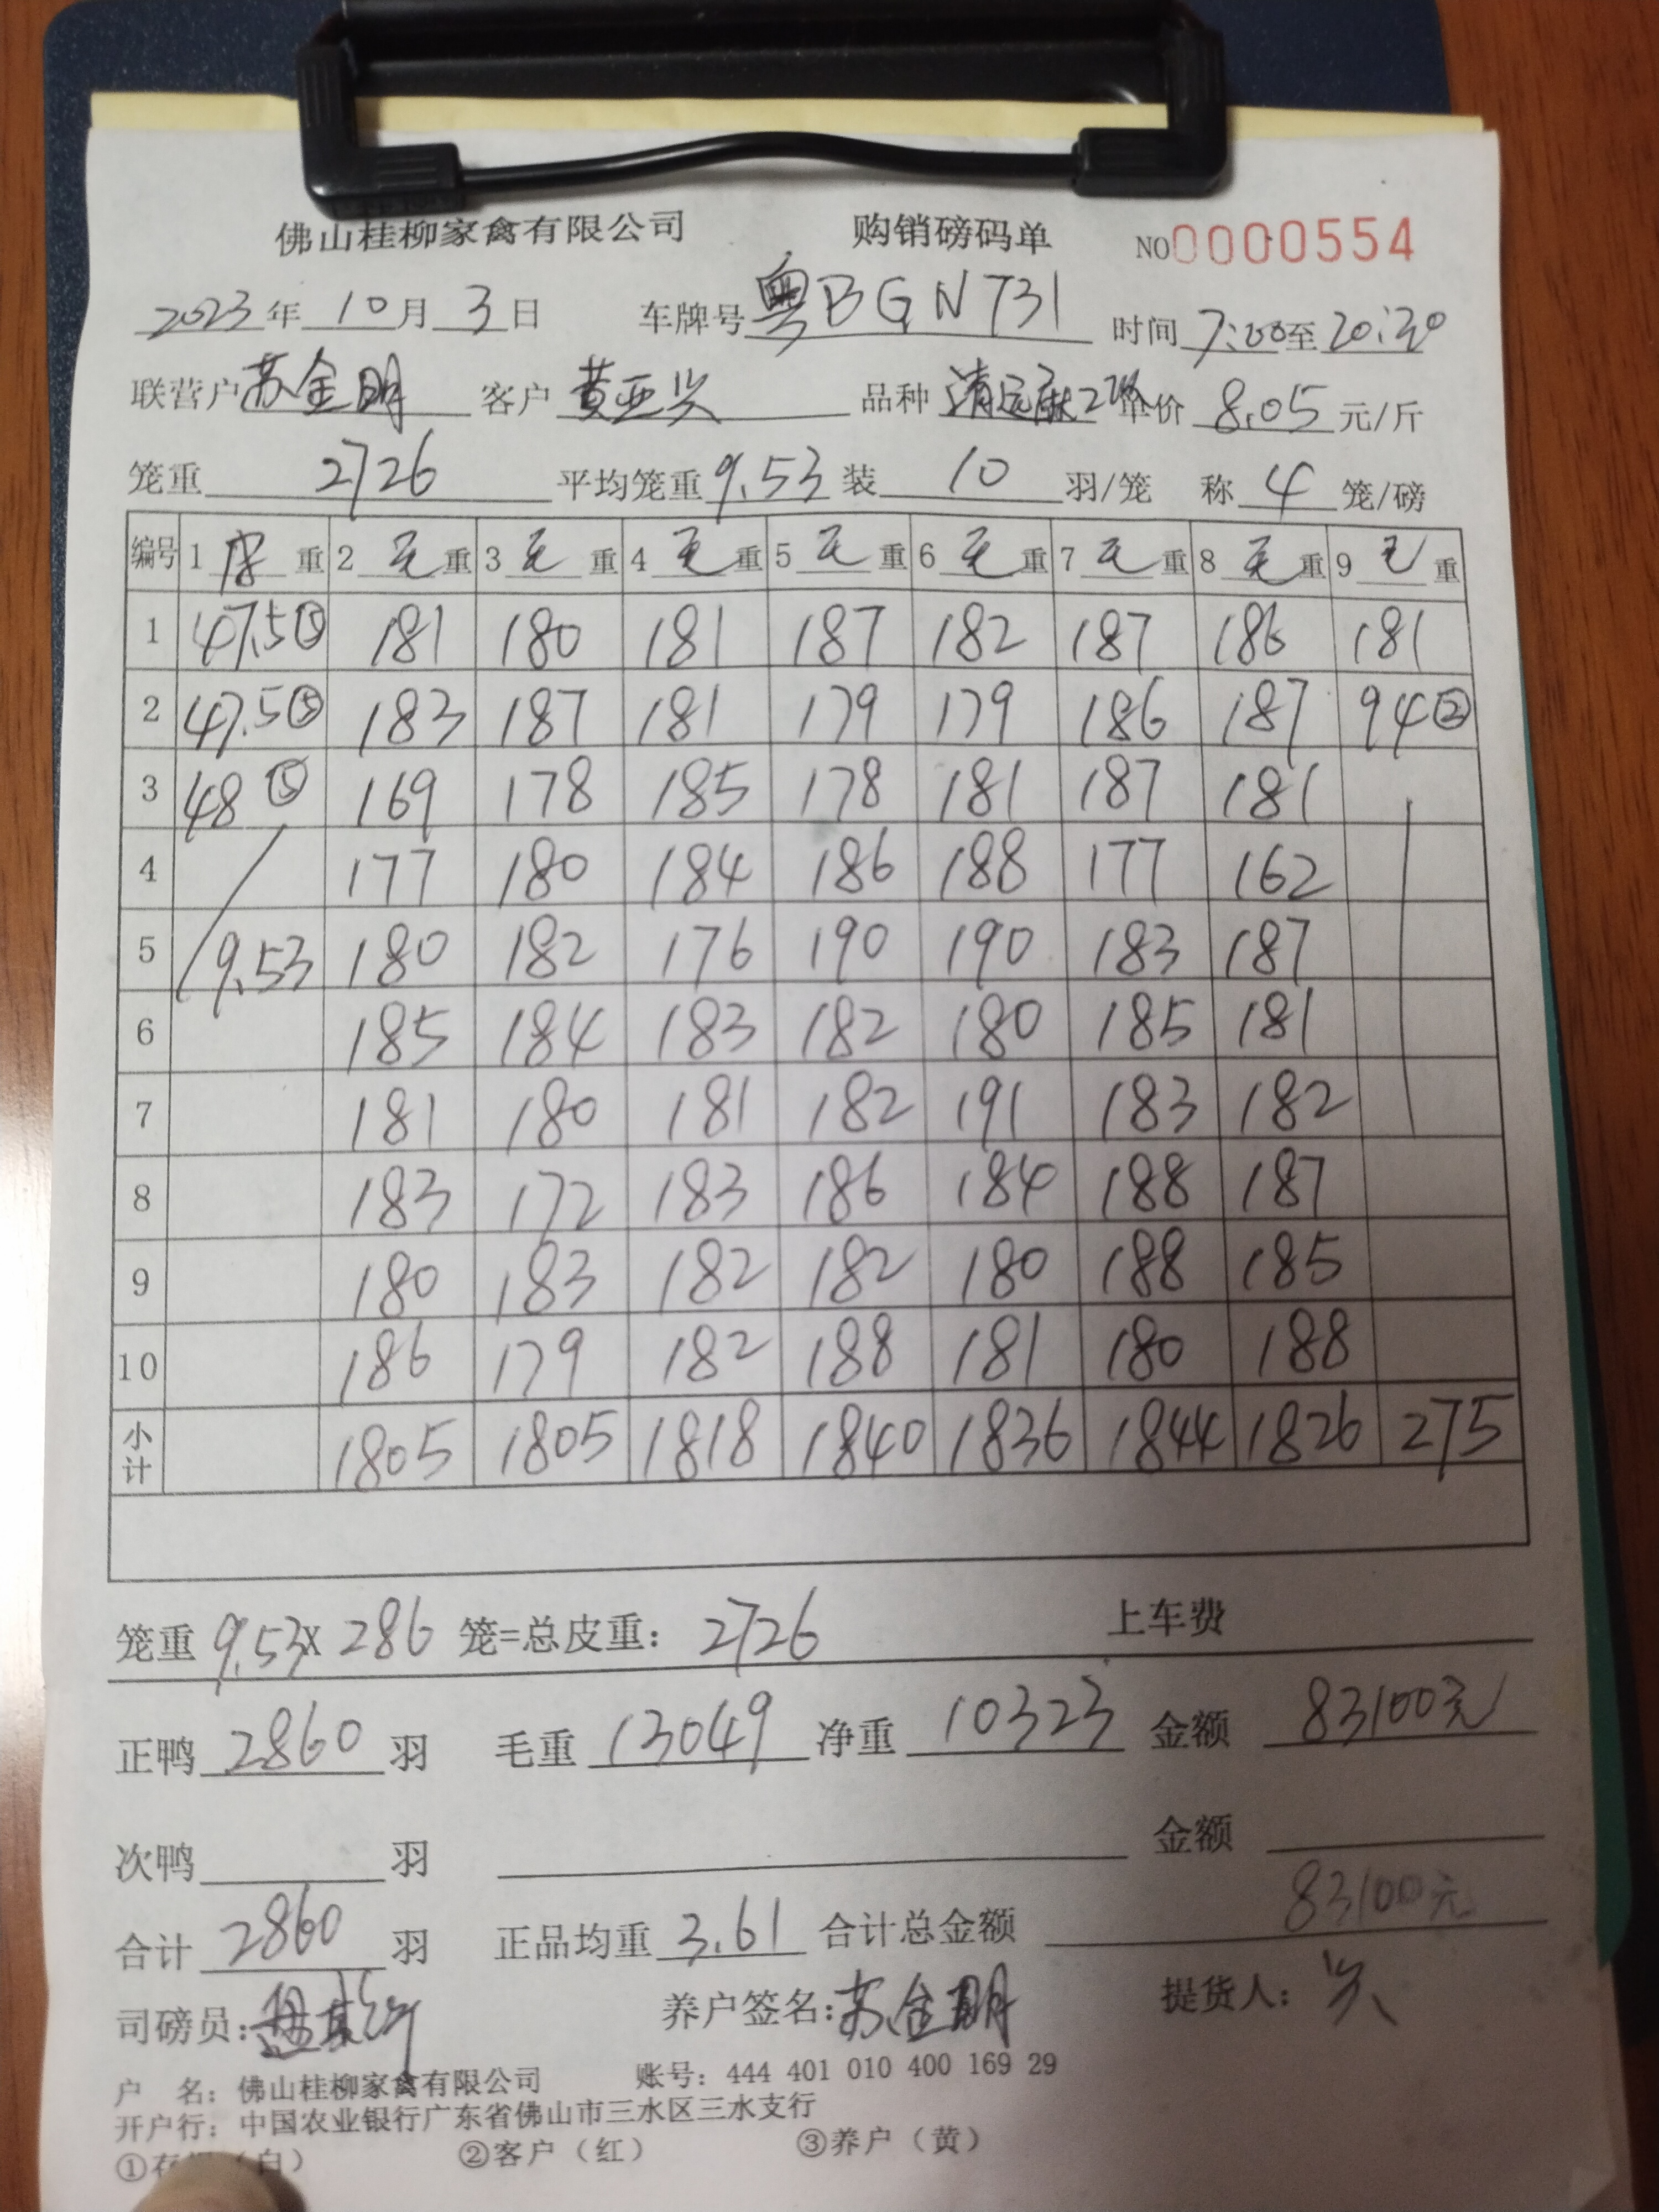 佛山桂柳家禽有限公司 购销磅码单 NO0000554
2023年10月3日 车牌号粤BGN731 时间7:00至20:20
联营户苏金明 客户黄亚兴 品种清远麻2 单价8.05元/斤
笼重2726平均笼重9.53装10羽/笼 称4笼/磅
编号 1皮重 2毛重 3毛重 4毛重 5毛重 6毛重 7毛重 8毛重 9毛重
1 47.5⑤ 181 180 181 187 182 187 186 181
2 47.5⑤ 183 187 181 179 179 186 187 94②
3 48⑤ 169 178 185 178 181 187 181
4 177 180 184 186 188 177 162
5 9.53 180 182 176 190 190 183 187
6 185 184 183 182 180 185 181
7 181 180 181 182 191 183 182
8 183 172 183 186 184 188 187
9 180 183 182 182 180 188 185
10 186 179 182 188 181 180 188
小计 1805 1805 1818 1840 1836 1844 1826 275
笼重9.53X286笼=总皮重：2726 上车费
正鸭2860羽 毛重13049净重10323 金额83100元
次鸭 羽 金额
合计2860羽 正品均重3.61合计总金额83100元
司磅员： 养户签名：苏金明 提货人：兴
户 名：佛山桂柳家禽有限公司 账号：444 401 010 400 169 29
开户行：中国农业银行广东省佛山市三水区三水支行
①存（白） ②客户（红） ③养户（黄）